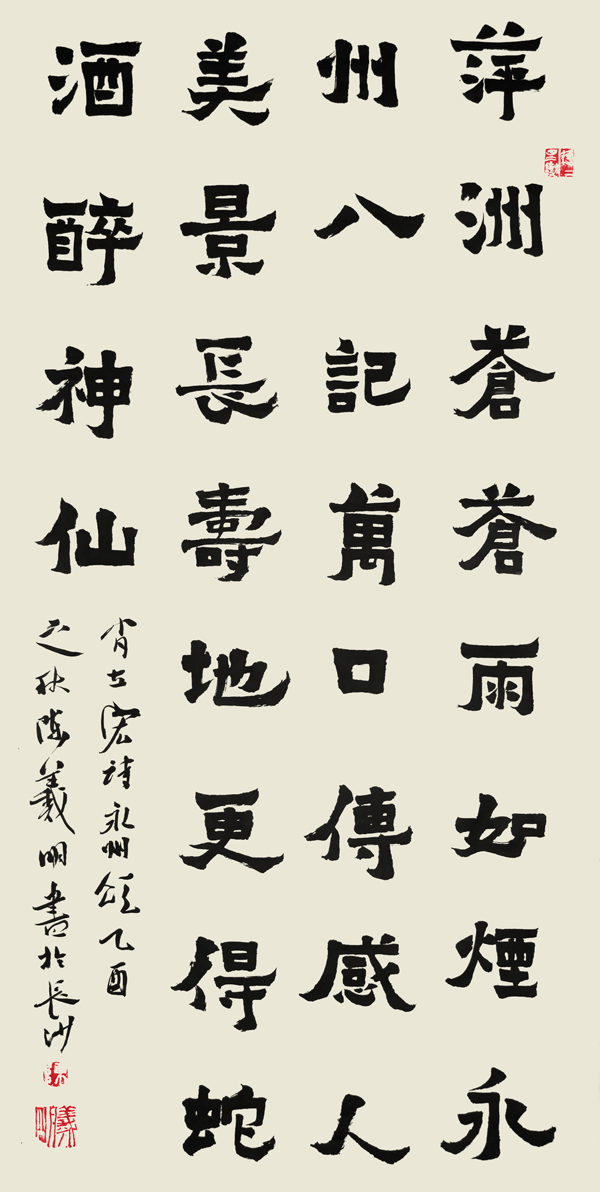 萍洲蒼蒼雨如煙永
州八記萬口傳感人
美景長壽地更得蛇
酒醉神仙
肖詩永州頌乙酉
之秋陳羲明書於長沙